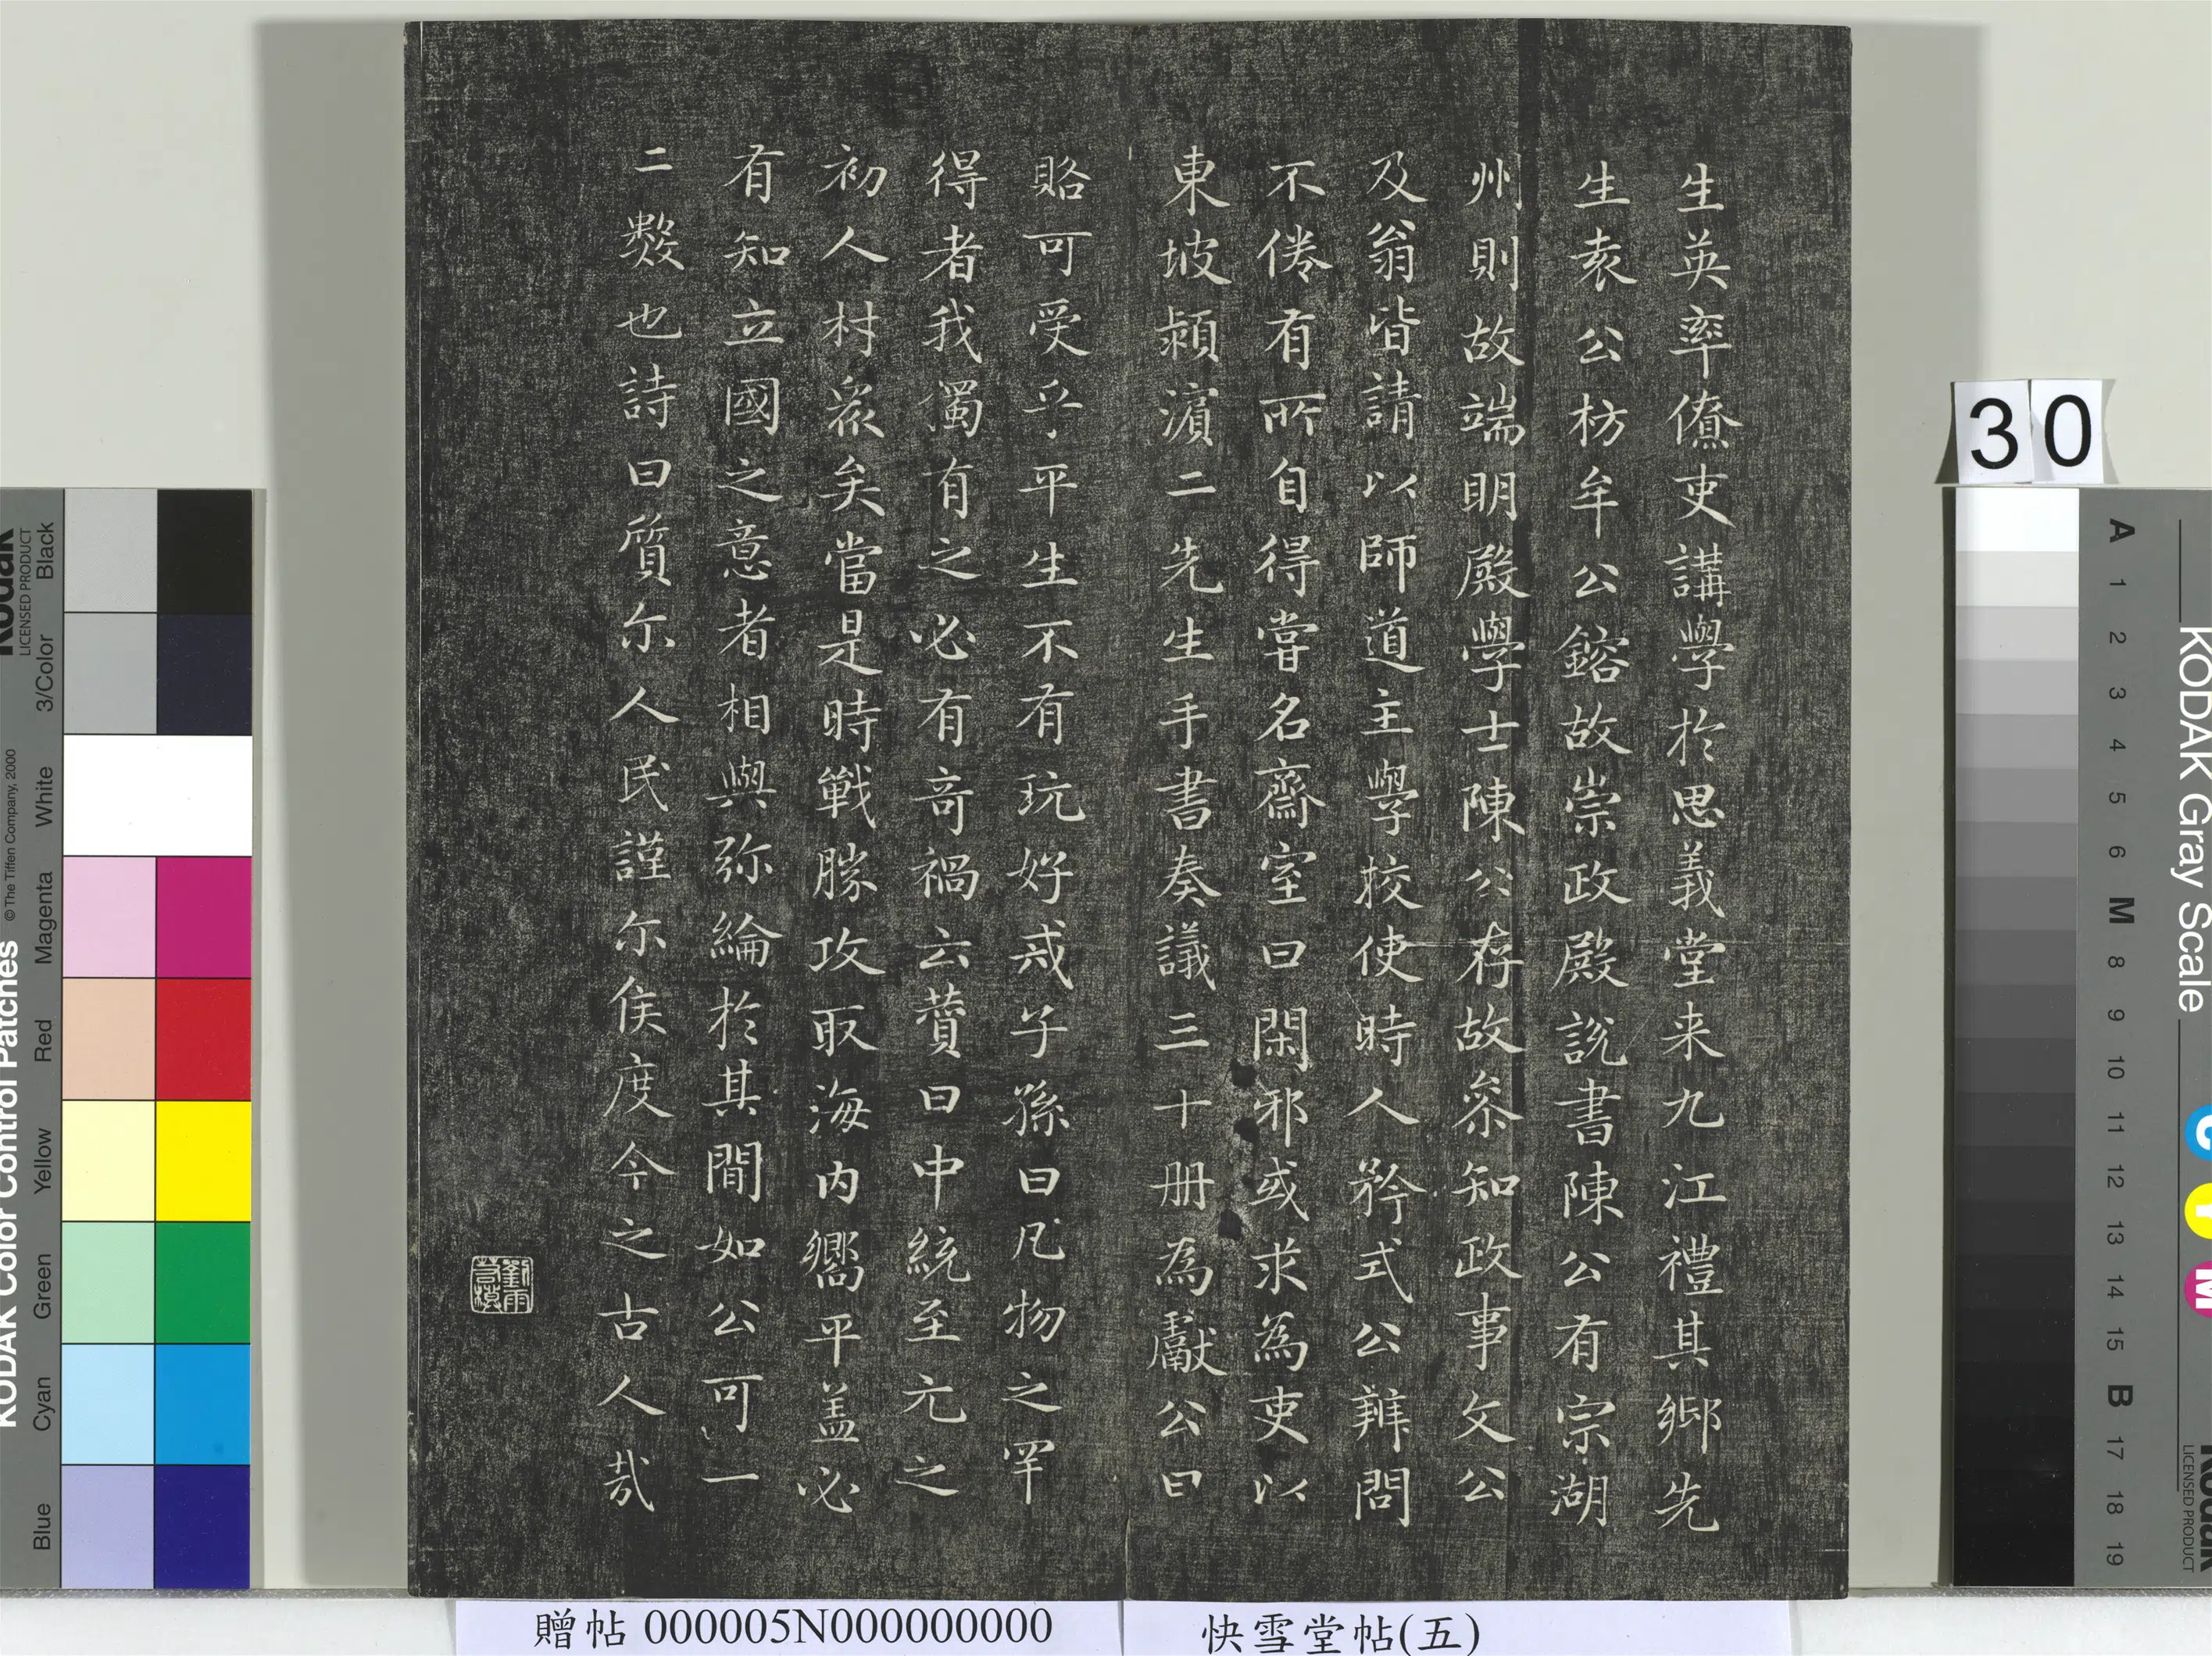 生英率僚吏講學於思義堂来九江禮其鄉先
生袁公枋牟公鎔故崇政殿說書陳公有宗湖
州則故端明殿學士陳公存故叅知政事文公
及翁皆請以師道主學校使時人矜式公辨問
不倦有所自得嘗名齋室曰閑邪或求為吏以
東坡潁濱二先生手書奏議三十册為獻公曰
賂可受乎平生不有玩好戒子孫曰凡物之罕
得者我獨有之必有奇禍云贊曰中統至元之
初人材衆矣當是時戰勝攻取海内嚮平盖必
有知立國之意者相與弥綸於其間如公可一
二數也詩曰質尔人民謹尔侯度今之古人哉
30
贈帖 000005N000000000
快雪堂帖(五)
KODAK Color Control Patches
© The Tiffen Company, 2000
Kodak
LICENSED PRODUCT
Blue Cyan Green Yellow Red Magenta White 3/Color Black
KODAK Gray Scale
A 1 2 3 4 5 6 M 8 9 10 11 12 13 14 15 B 17 18 19
C
Y
M
Kodak
LICENSED PRODUCT